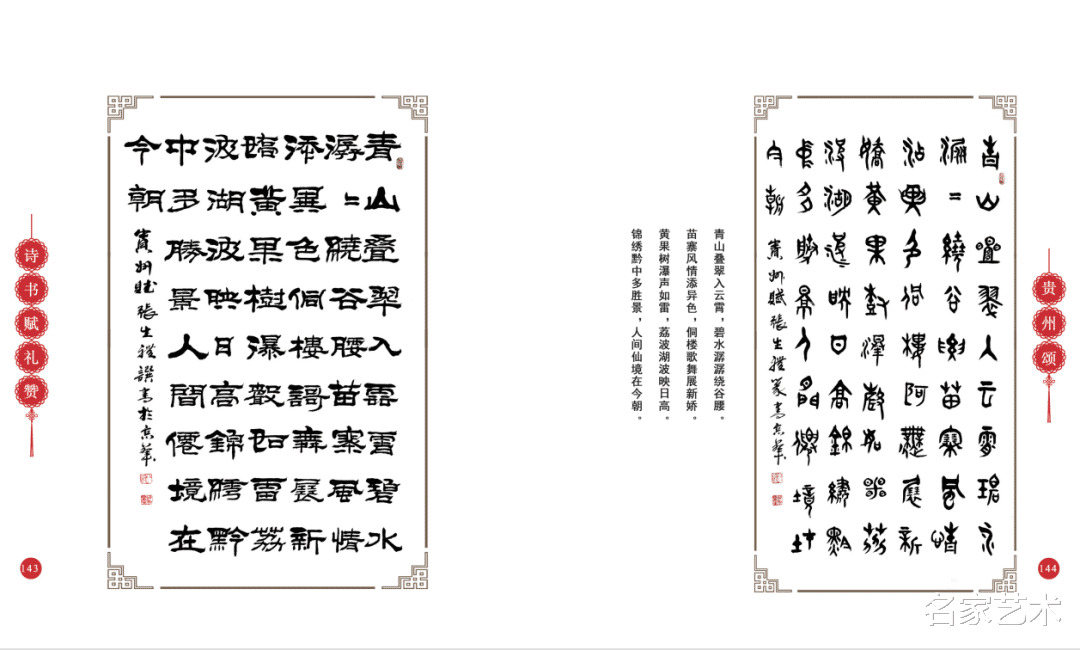 诗书赋礼赞
143
青山疊翠入雲霄碧水
潺〻繞谷腰苗寨風情
添異色侗樓謌舞展新
嬌黃果樹瀑聲如雷荔
波湖波映日高錦繡黔
中多勝景人間僊境在
今朝
貴州賦 張生禮撰書於京華
青山叠翠入云霄，碧水潺潺绕谷腰。
苗寨风情添异色，侗楼歌舞展新娇。
黄果树瀑声如雷，荔波湖波映日高。
锦绣黔中多胜景，人间仙境在今朝。
青山疊翠入云霄碧水
潺〻繞谷腰苗寨風情
添異色侗樓歌舞展新
嬌黃果樹瀑聲如雷荔
波湖波映日高錦繡黔
中多勝景人間僊境在
今朝
貴州賦 張生禮篆書京華
贵州颂
144
名家艺术